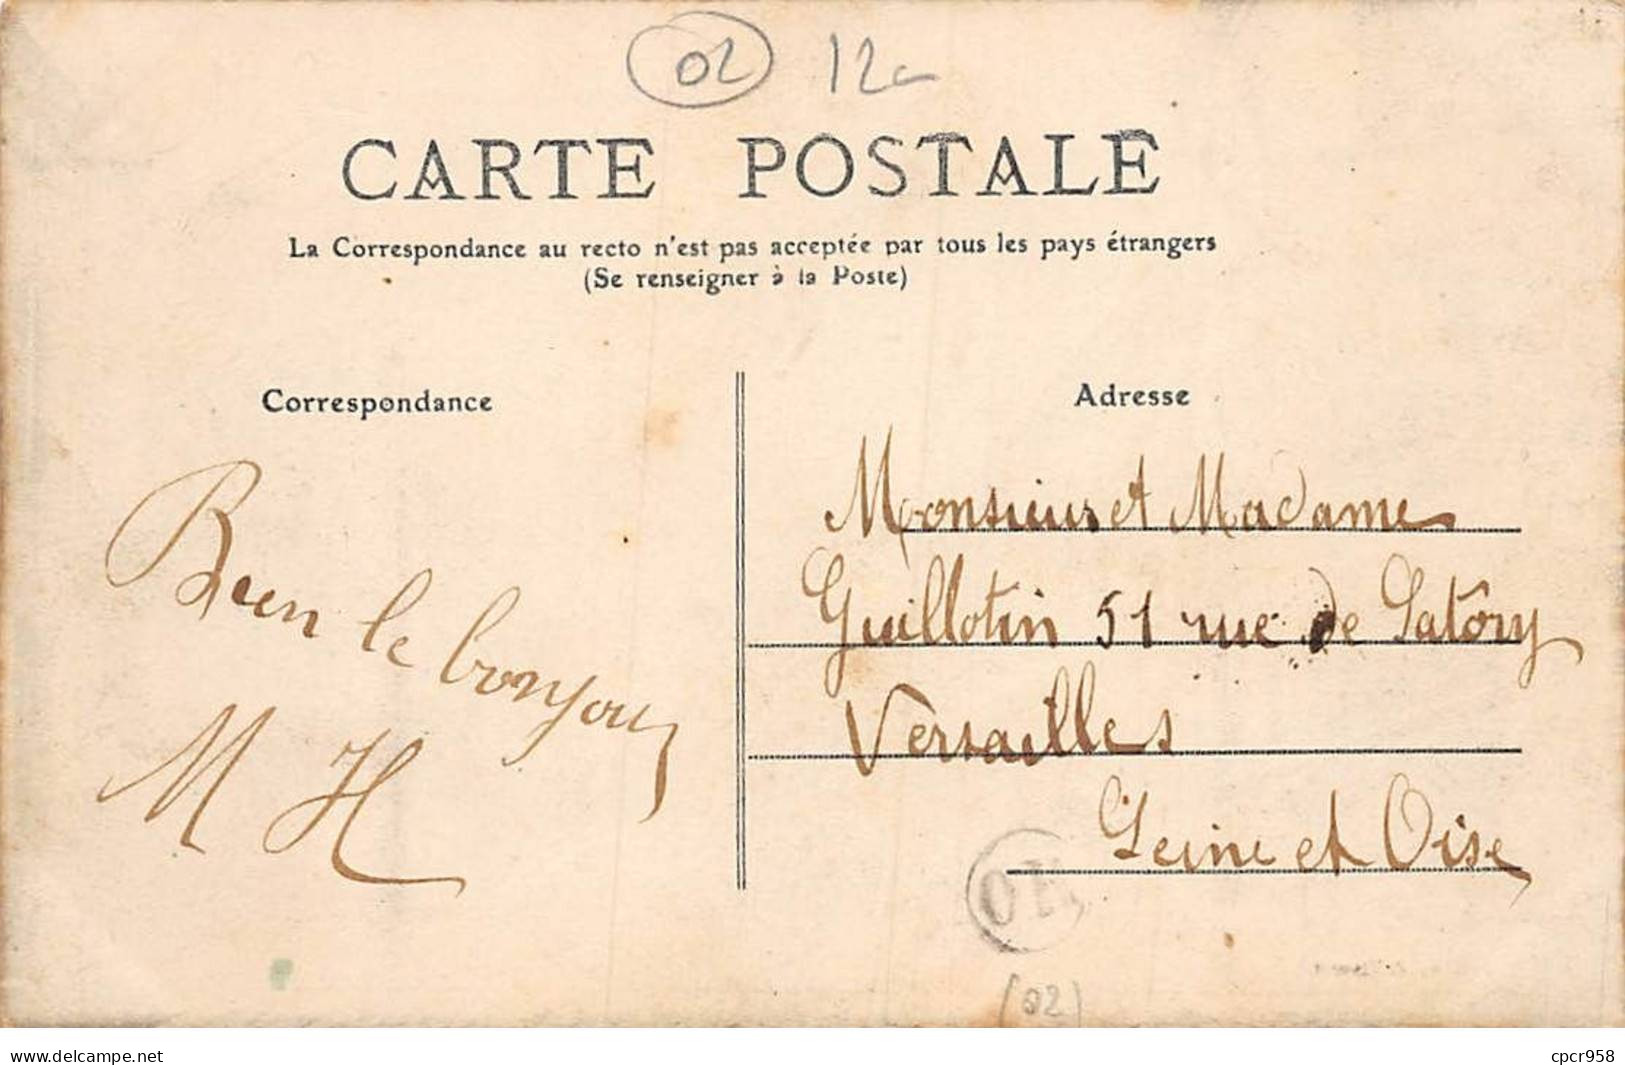 02 12c
CARTE POSTALE
La Correspondance au recto n'est pas acceptée par tous les pays étrangers
(Se renseigner à la Poste)
Correspondance
Bien le bonjour
M H
Adresse
Monsieur et Madame
Guillotin 51 rue de Satory
Versailles
Seine et Oise
(02)
cpcr958
https://www.delcampe.net